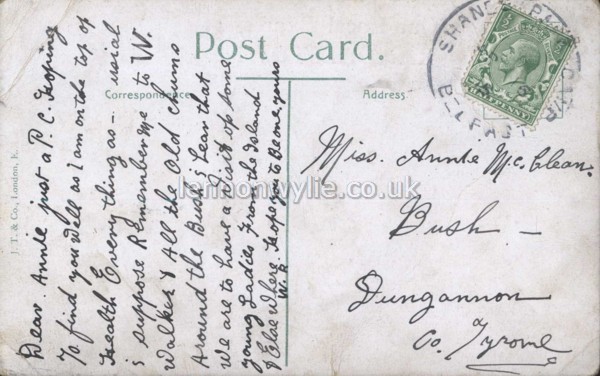 Post Card.
Correspondence.
Address.
J. T. & Co., London, E.
Dear Annie just a P.C. Hoping
To find you Well as I am on the top of
Health Everything as - usial
i suppose Remember Me to W.
Walker & All the Old chums
Around the Bush i Hear that
We are to have a Visit of some
young Ladies From the Island
& Elsewhere. Hope you to Be one yours
W. R.
Miss. Annie Mc.Clean.
Bush -
Dungannon
Co. Tyrone
BELFAST
HALFPENNY
lennonwylie.co.uk